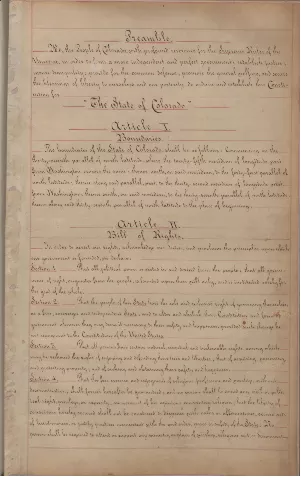 Preamble.
We, the People of Colorado, with profound reverence for the Supreme Ruler of the
Universe, in order to form a more independent and perfect government; establish justice;
insure tranquility; provide for the common defense; promote the general welfare, and secure
the blessings of liberty to ourselves and our posterity, do ordain and establish this Consti-
tution for
"The State of Colorado"
Article I.
Boundaries.
The boundaries of the State of Colorado shall be as follows: Commencing on the
thirty-seventh parallel of north latitude, where the twenty-fifth meridian of longitude west
from Washington crosses the same; thence north, on said meridian, to the forty-first parallel of
north latitude; thence along said parallel, west, to the thirty-second meridian of longitude west
from Washington; thence south, on said meridian, to the thirty-seventh parallel of north latitude;
thence along said thirty-seventh parallel of north latitude to the place of beginning.
Article II.
Bill of Rights.
In order to assert our rights, acknowledge our duties, and proclaim the principles upon which
our government is founded, we declare:
Section 1. That all political power is vested in and derived from the people; that all govern-
ment, of right, originates from the people, is founded upon their will only, and is instituted solely for
the good of the whole.
Section 2. That the people of this State have the sole and exclusive right of governing themselves,
as a free, sovereign and independent State; and to alter and abolish their Constitution and form of
government whenever they may deem it necessary to their safety and happiness, provided such change be
not repugnant to the Constitution of the United States.
Section 3. That all persons have certain natural, essential and inalienable rights, among which
may be reckoned the right of enjoying and defending their lives and liberties; that of acquiring, possessing
and protecting property; and of seeking and obtaining their safety and happiness.
Section 4. That the free exercise and enjoyment of religious profession and worship, without
discrimination, shall forever hereafter be guaranteed; and no person shall be denied any civil or politi-
cal right, privilege or capacity, on account of his opinions concerning religion; but the liberty of
conscience hereby secured shall not be construed to dispense with oaths or affirmations, excuse acts
of licentiousness or justify practices inconsistent with the good order, peace or safety of the State. No
person shall be required to attend or support any ministry or place of worship, religious sect or denomination